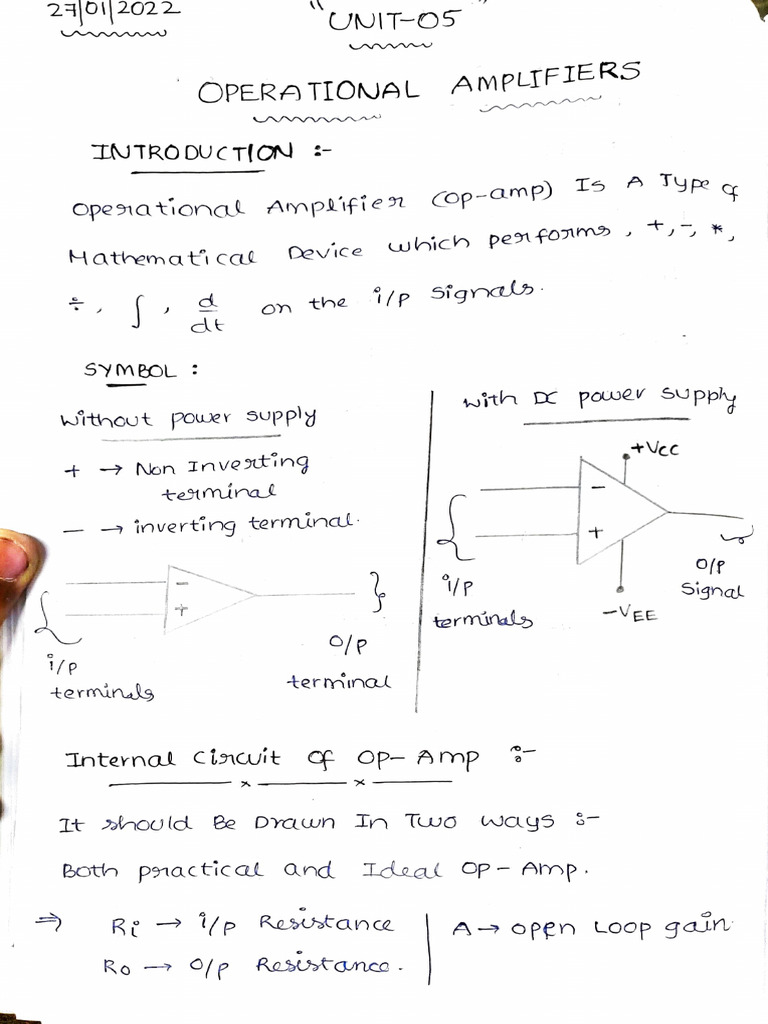 27/01/2022
"UNIT-05"
OPERATIONAL AMPLIFIERS
INTRODUCTION :-
Operational Amplifier (op-amp) Is A Type of
Mathematical Device which performs, +, -, *,
÷, ∫, d/dt on the i/p signals.
SYMBOL :
without power supply
+ → Non Inverting
terminal
— → inverting terminal.
−
+
i/p
terminals
O/P
terminal
with DC power supply
+VCC
−
+
i/p
terminals
O/P
Signal
-VEE
Internal Circuit of OP-Amp :-
It should Be Drawn In Two ways :-
Both practical and Ideal OP-Amp.
⇒ Ri → i/p Resistance
Ro → O/P Resistance.
A → open Loop gain